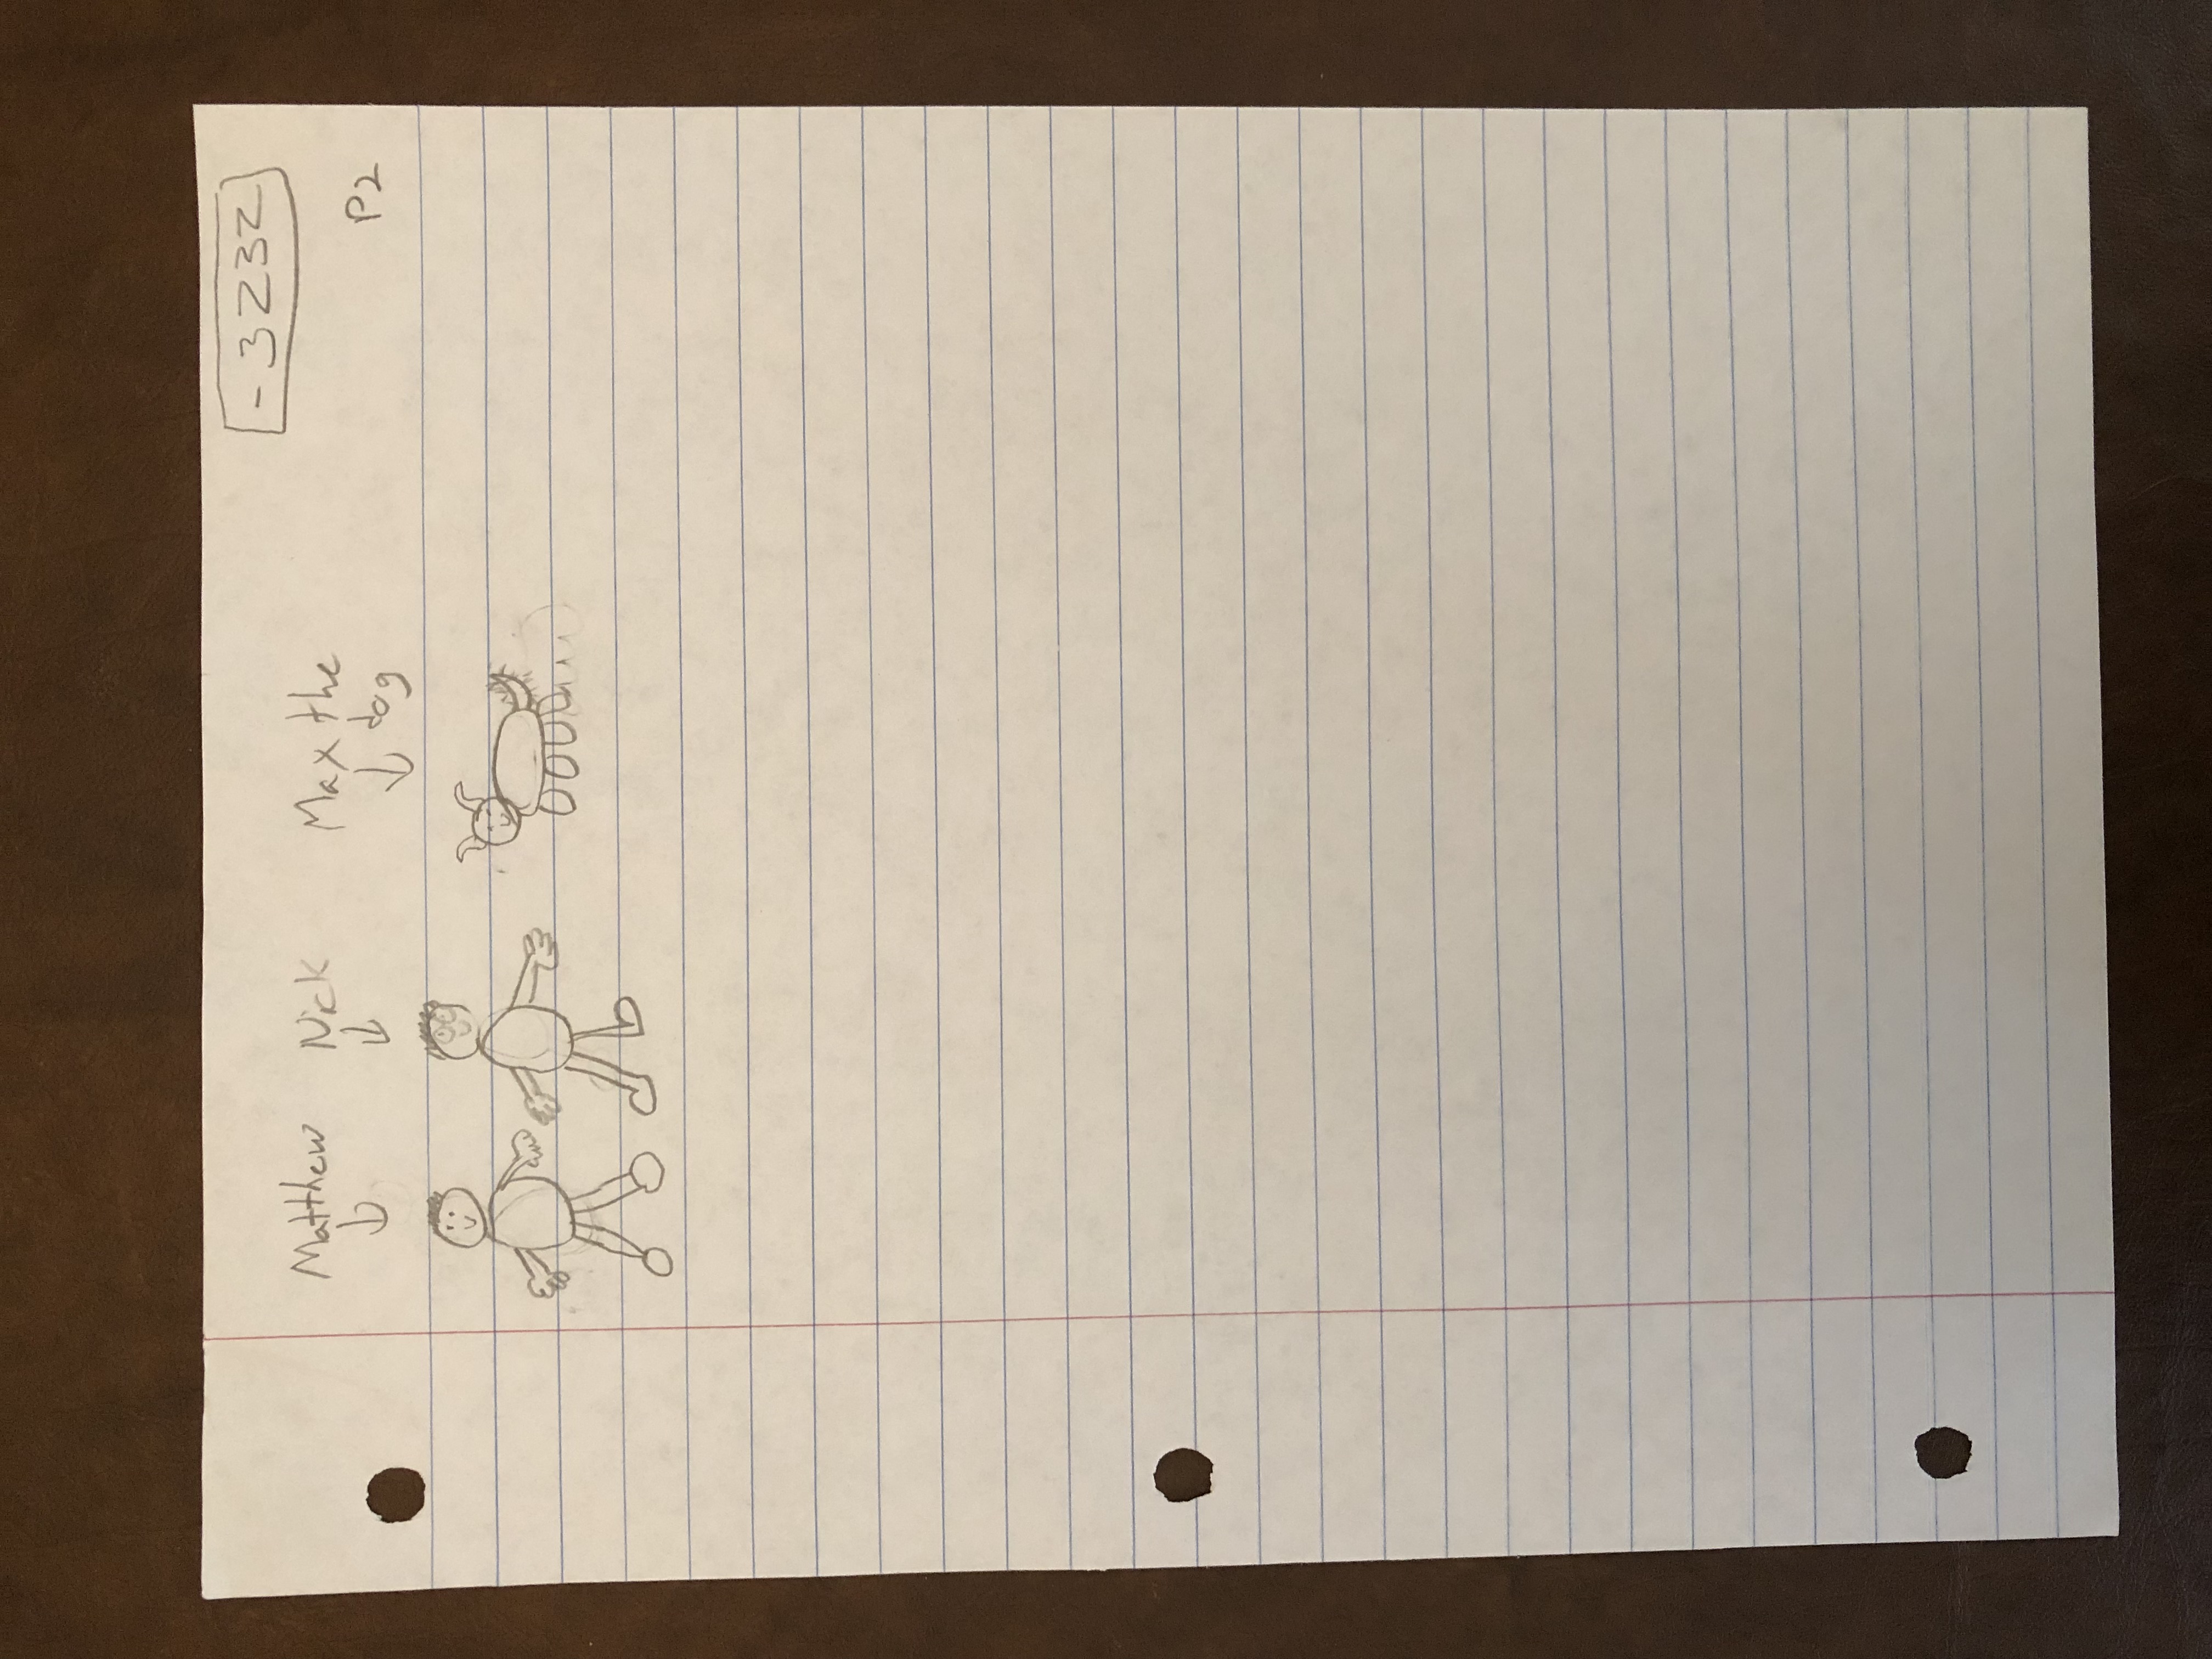 -3232
Matthew Nick Max the
dog
P2